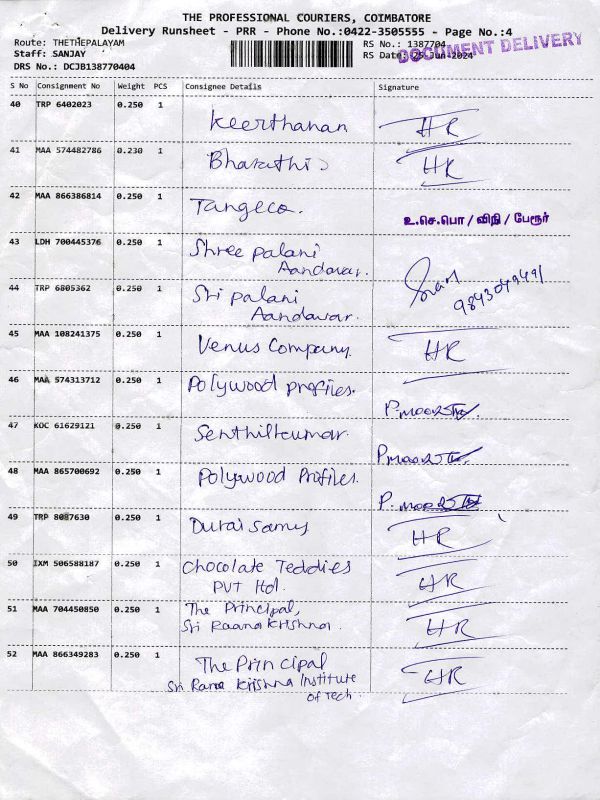 THE PROFESSIONAL COURIERS, COIMBATORE
Delivery Runsheet - PRR - Phone No.:0422-3505555 - Page No.:4
Route: THETHEPALAYAM
Staff: SANJAY
DRS No.: DCJB138770404
RS No.: 1387704
RS Date: 25-Jun-2024
DOCUMENT DELIVERY
S No Consignment No Weight PCS Consignee Details Signature
40 TRP 6402023 0.250 1 Keerthanan HR
41 MAA 574482786 0.230 1 Bharathi HR
42 MAA 866386814 0.250 1 Tangeco. உ.செ.பொ / விநி / பேரூர்
43 LDH 700445376 0.250 1 Shree Palani
Aandavar.
44 TRP 6805362 0.250 1 Sri Palani
Aandavar.
45 MAA 108241375 0.250 1 Venus Company. HR
46 MAA 574313712 0.250 1 Polywood Profiles.
47 KOC 61629121 0.250 1 Senthilkumar.
48 MAA 865700692 0.250 1 Polywood Profiles.
49 TRP 8087630 0.250 1 Durai Samy HR
50 IXM 506588187 0.250 1 Chocolate Teddies HR
PVT Htd.
51 MAA 704450850 0.250 1 The Principal, HR
Sri Raana Krishna.
52 MAA 866349283 0.250 1 The Principal HR
Sri Rama Krishna Institute
of Tech.